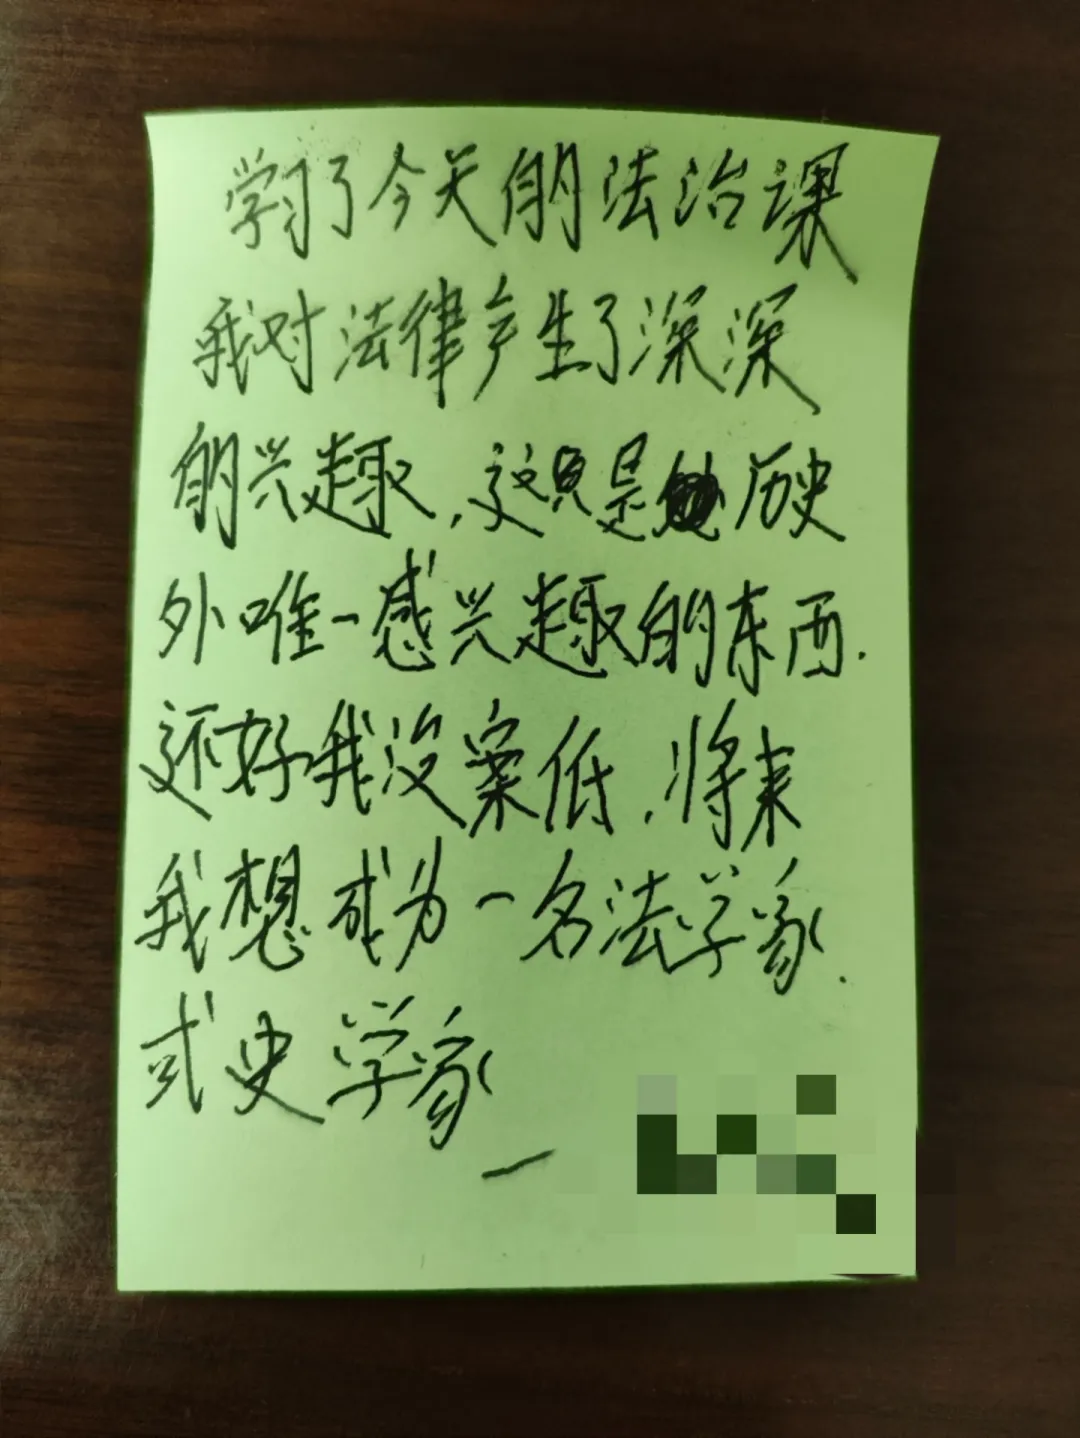 学习了今天的法治课
我对法律产生了深深
的兴趣，这只是历史
外唯一感兴趣的东西.
还好我没案低，将来
我想成为一名法学家.
或史学家